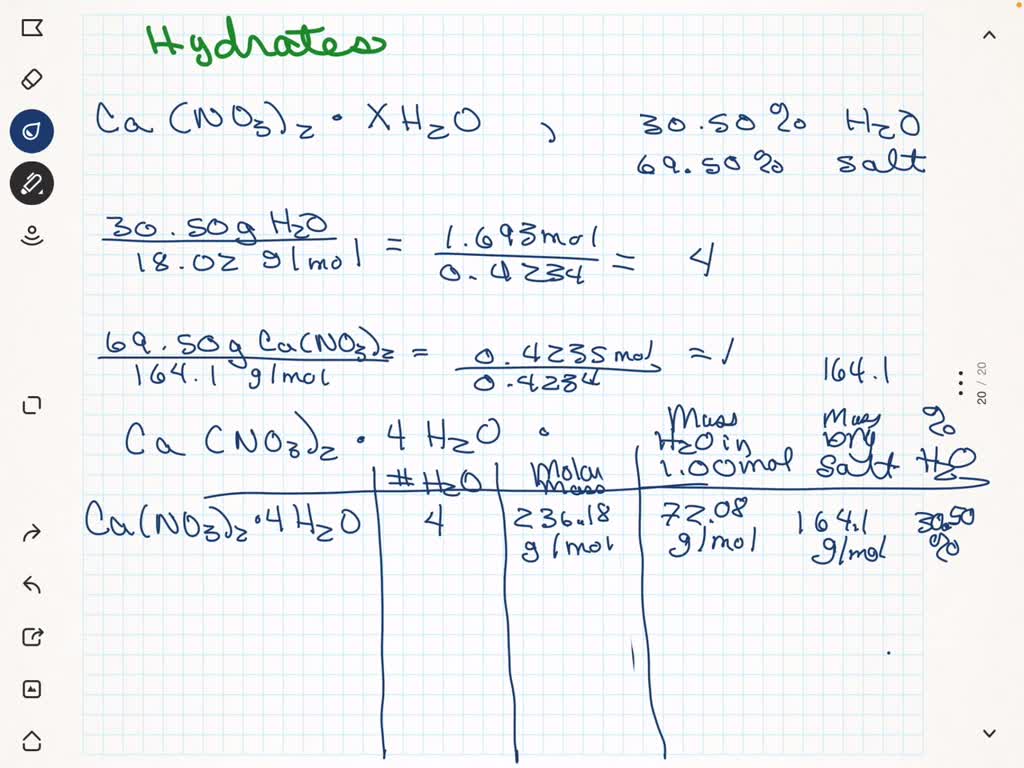 Hydrates
Ca(NO₃)₂ • XH₂O , 30.50% H₂O
69.50% salt
30.50g H₂O / 18.02 g/mol = 1.693mol / 0.4234 = 4
69.50g Ca(NO₃)₂ / 164.1 g/mol = 0.4235mol / 0.4234 = 1
164.1
Ca(NO₃)₂ • 4H₂O
# H₂O | Molar Mass | Mass H₂O in 1.00mol | Mass Dry Salt | % H₂O
Ca(NO₃)₂•4H₂O | 4 | 236.18 g/mol | 72.08 g/mol | 164.1 g/mol | 30.50 %
20 / 20